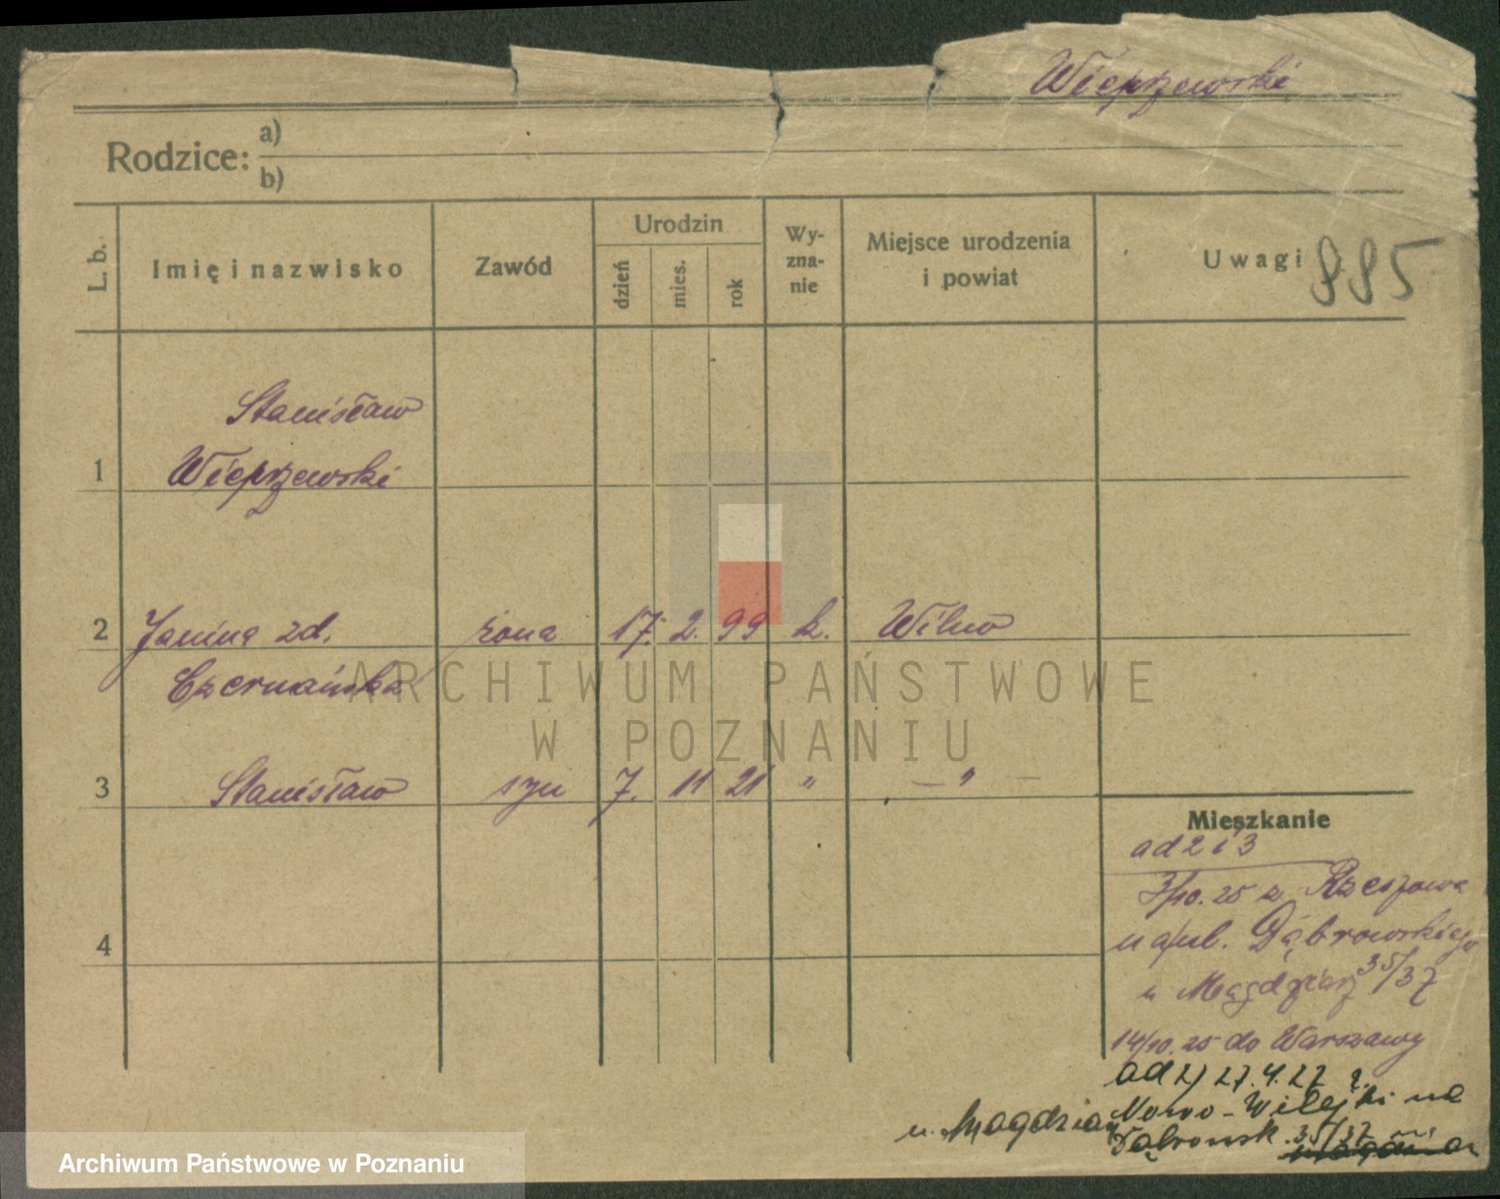 Wieprzewski
Rodzice: a)
b)
L. b.
Imię i nazwisko
Zawód
Urodzin
dzień
mies.
rok
Wy-
zna-
nie
Miejsce urodzenia
i powiat
Uwagi 995
1 Stanisław
Wieprzewski
2 Janina zd. żona 17. 2. 99 k. Wilno
Czernańska
3 Stanisław syn 7. 11 21 " — " —
4
Mieszkanie
ad 2 i 3
3/10. 25 z Rzeszowa
na ul. Dąbrowskiego
u Magdziarz 35/37
14/10. 25 do Warszawy
ad 2) 27. 4. 27 z.
Nowo-Wilejki na
Dąbrowsk. 35/37
u. Magdziarz
ARCHIWUM PAŃSTWOWE
W POZNANIU
Archiwum Państwowe w Poznaniu